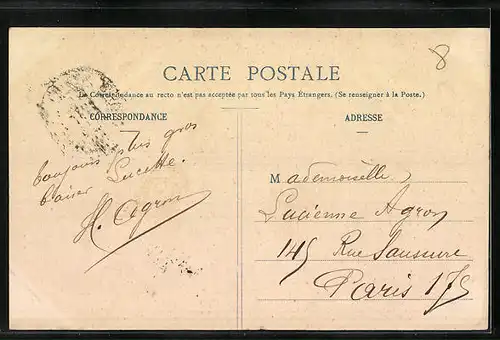 8
CARTE POSTALE
La Correspondance au recto n'est pas acceptée par tous les Pays Étrangers. (Se renseigner à la Poste.)
CORRESPONDANCE
ADRESSE
plus gros
baiser Lucette.
H. Agron
Mademoiselle
Lucienne Agron
145 Rue Saussure
Paris 17e